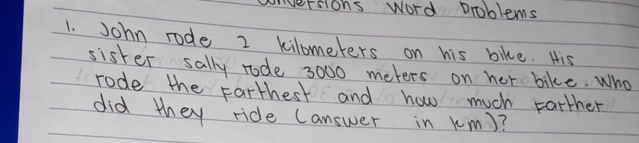 Conversions Word Problems
1. John rode 2 kilometers on his bike. His
sister sally rode 3000 meters on her bike. Who
rode the farthest and how much farther
did they ride (answer in km)?